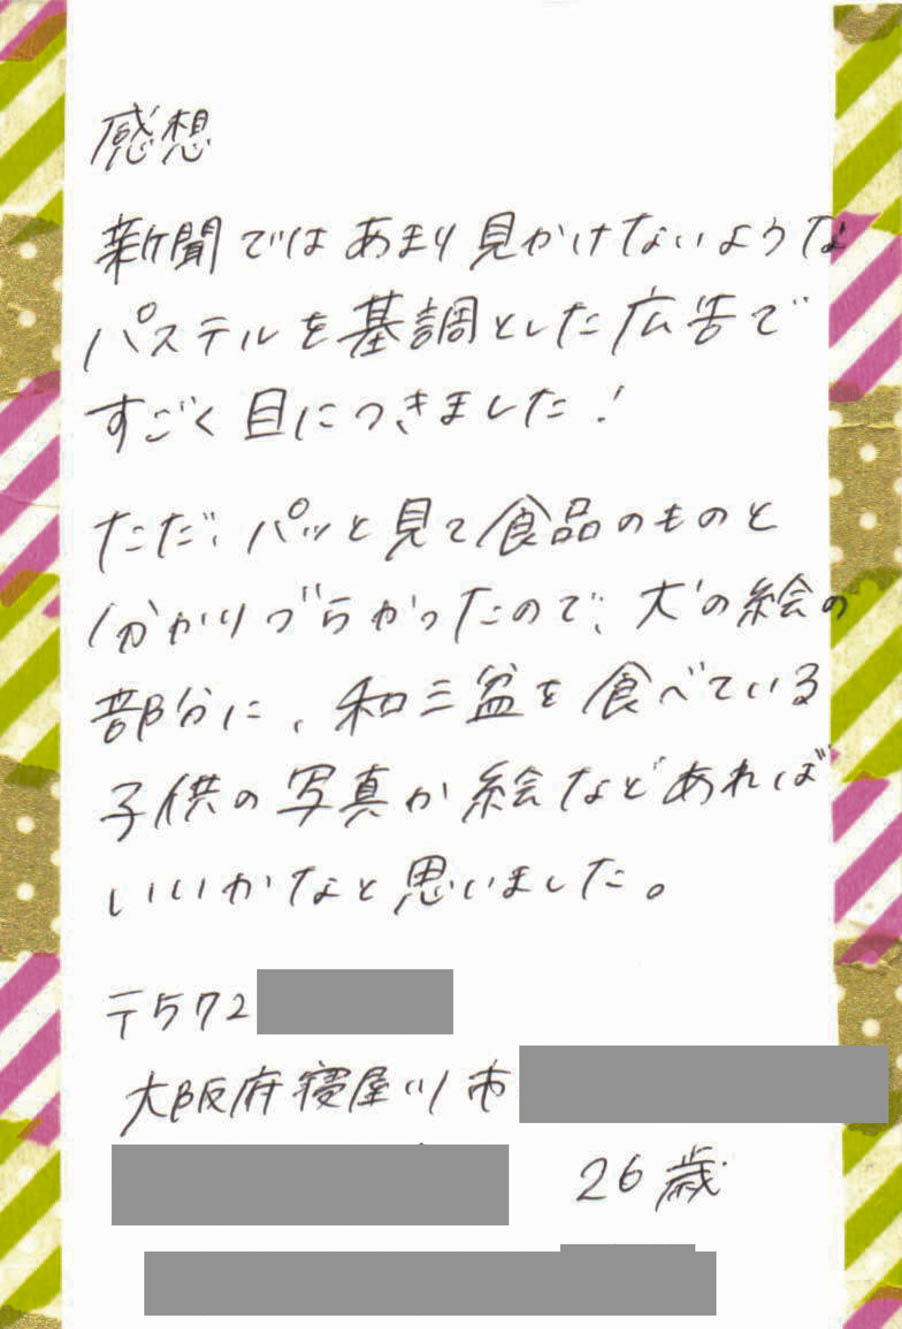 感想
新聞ではあまり見かけないような
パステルを基調とした広告で
すごく目につきました！
ただ、パッと見て食品のものと
分かりづらかったので、犬の絵の
部分に、和三盆を食べている
子供の写真か絵などあれば
いいかなと思いました。
〒572
大阪府寝屋川市
26歳